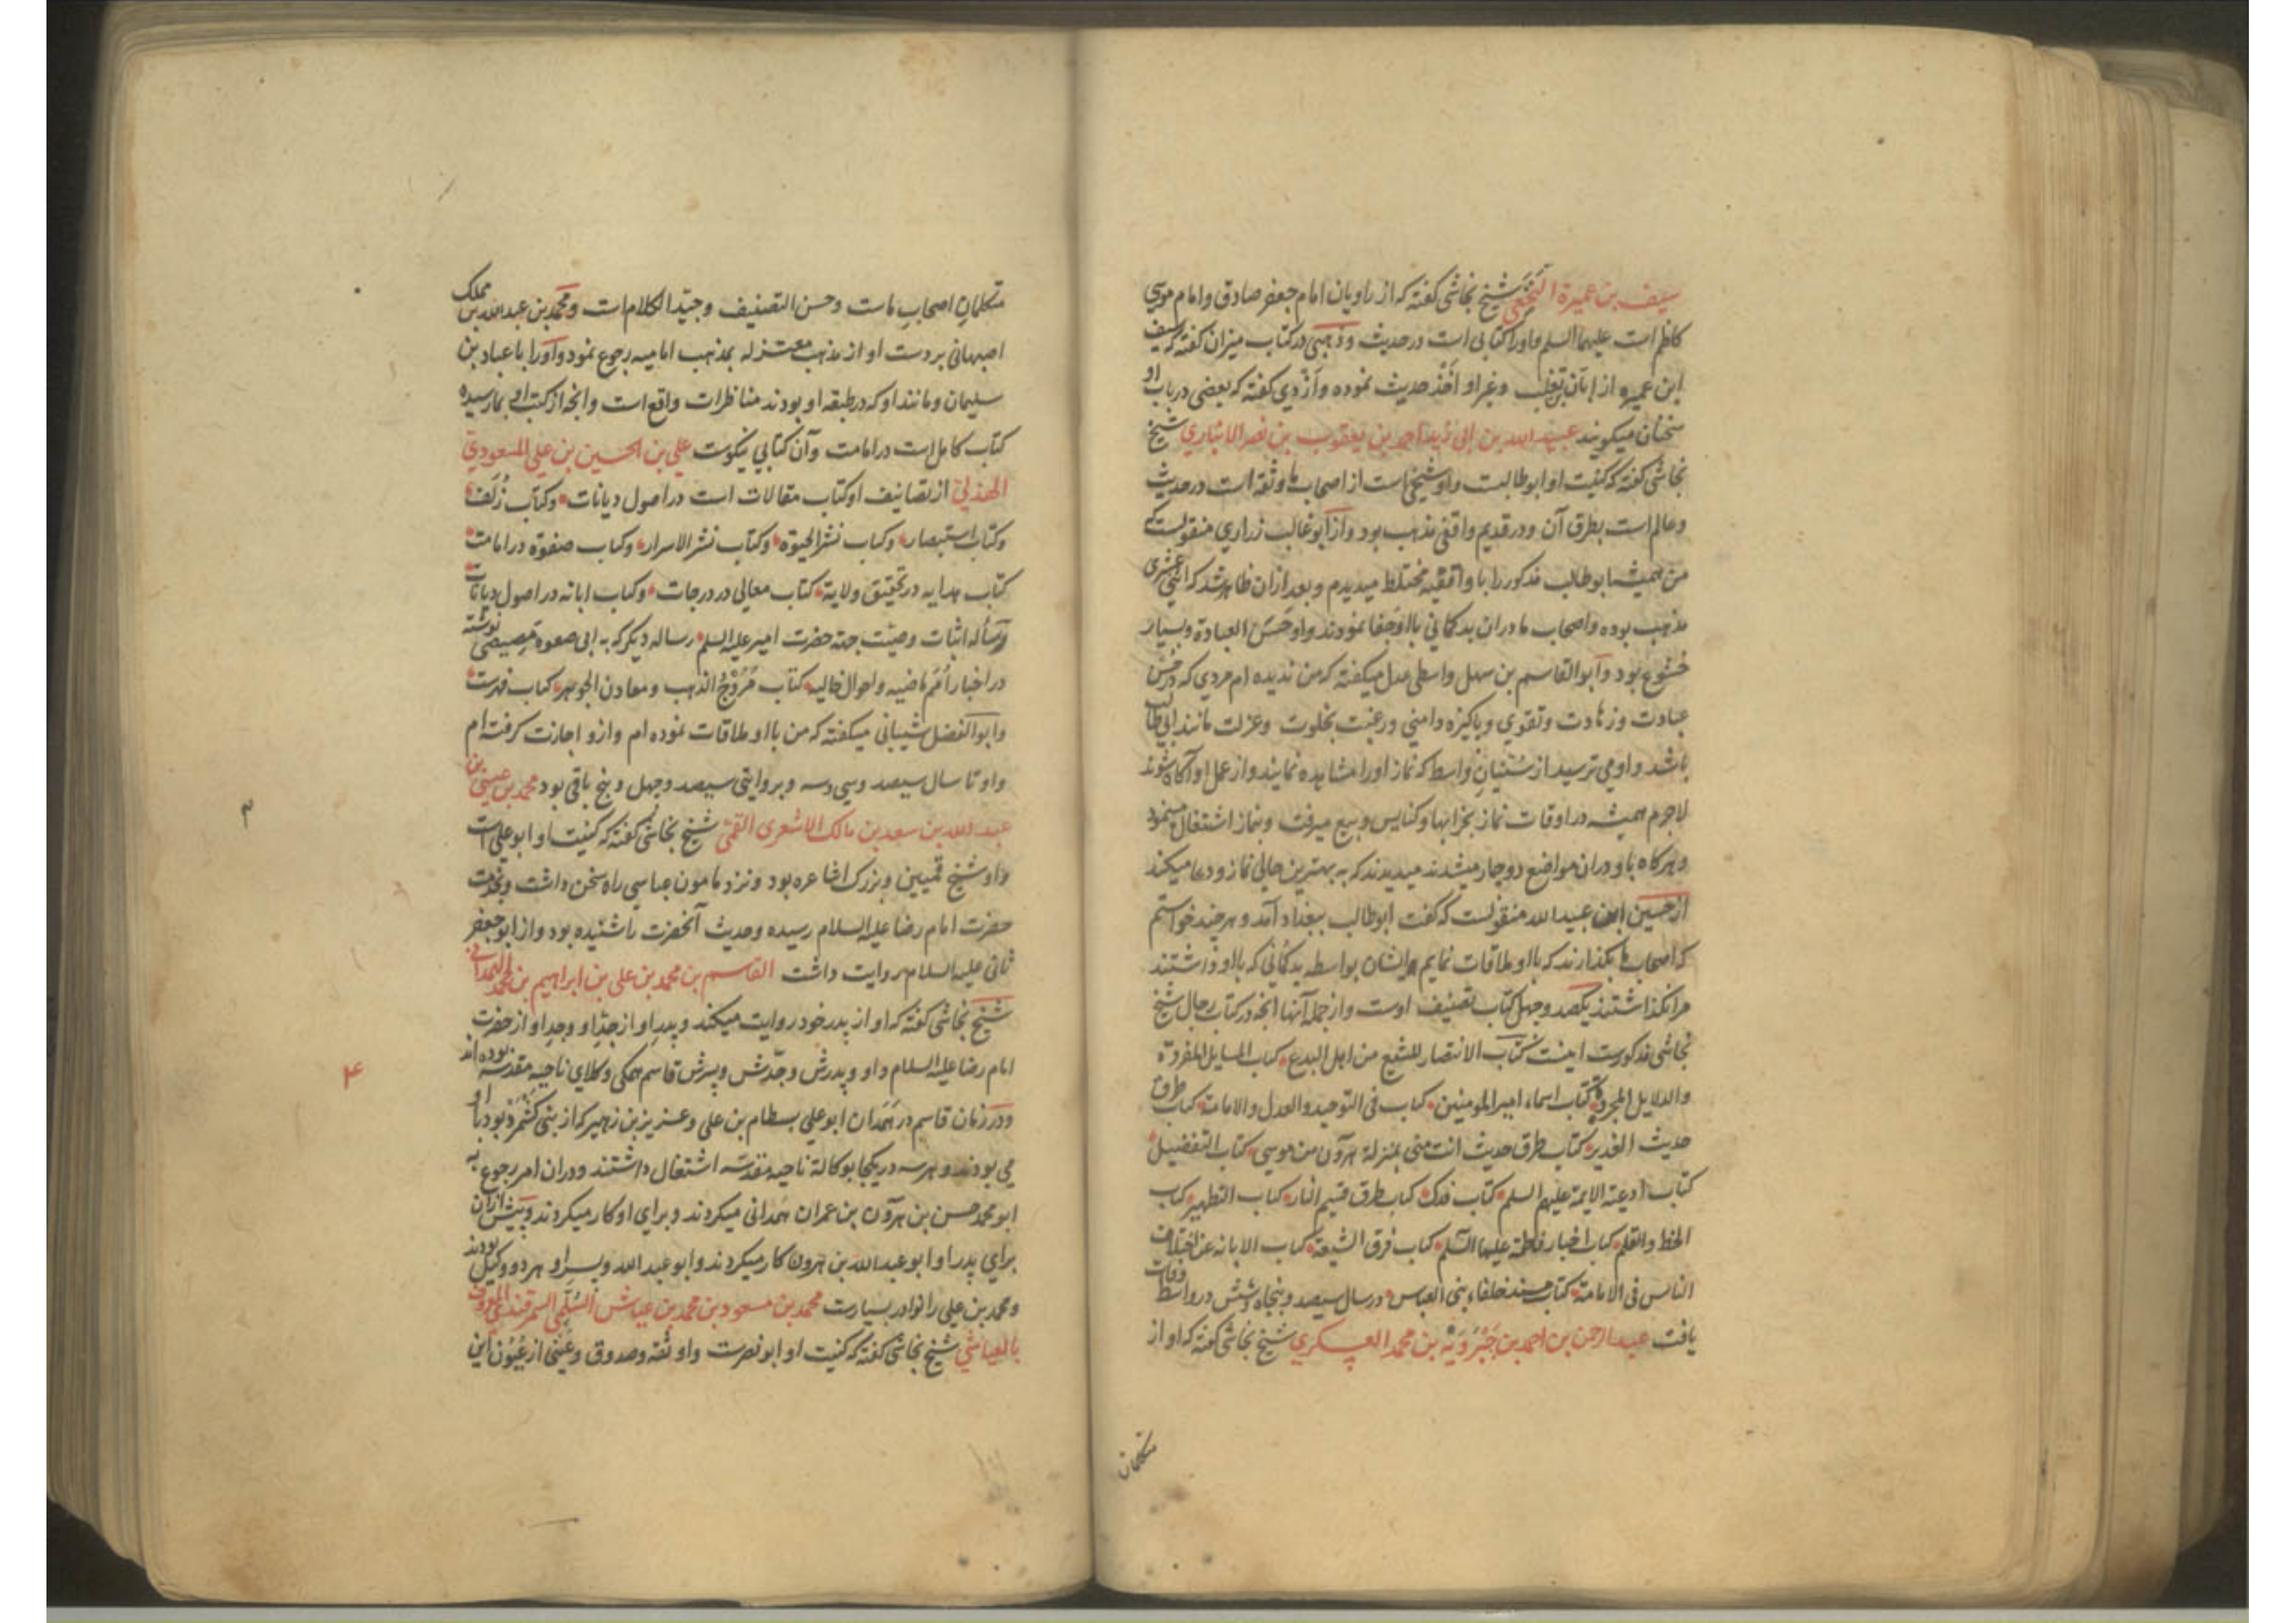 سیف بن عمیرة النخعی شیخ نجاشی گفته که از راویان امام جعفر صادق و امام موسی
کاظم است علیهما السلم و او را کتابی است در حدیث و ذهبی در کتاب میزان گفته که سیف
ابن عمیره از ابان تغلب و غیر او اخذ حدیث نموده و ازدی گفته که بعضی در باب او
سخنان میگویند عبید الله بن ابی زید احمد بن یعقوب بن نصر الانباری شیخ
نجاشی گفته که کنیت او ابو طالبست و او شیخی است از اصحاب ما و ثقه است در حدیث
و عالم است بطرق آن و در قدیم واقفی مذهب بود و از ابو غالب زراری منقولست که
من همیشه ابو طالب مذکور را با واقفیه مختلط میدیدم و بعد از ان ظاهر شد که اثنی عشری
مذهب بوده و اصحاب ما در ان بد گمانی با او جفا نمودند و او حسن العبادة و بسیار
خشوع بود و ابو القاسم بن سهل واسطی عدل میگفته که من ندیده ام مردی که در حسن
عبادت و زهادت و تقوی و پاکیزه دامنی و رغبت بخلوت و عزلت مانند ابی طالب
باشد و او می ترسید از سنیان واسط که نماز او را مشاهده نمایند و از عمل او آگاه شوند
لاجرم همیشه در اوقات نماز بخرابها و کنایس و بیع میرفت و بنماز اشتغال مینمود
و هرگاه باو در ان مواضع دوچار میشدند میدیدند که به بهترین حالی نماز و دعا میکند
از حسین ابن عبید الله منقولست که گفت ابو طالب ببغداد آمد و هر چند خواستم
که اصحاب ما بگذارند که با او ملاقات نمایم ایشان بواسطه بد گمانی که با او داشتند
مرا نگذاشتند یکصد و چهل کتاب تصنیف اوست و از جمله آنها انچه در کتاب رجال شیخ
نجاشی مذکورست اینست کتاب الانتصار للشیع من اهل البدع کتاب المسایل المفردة
والدلایل المجردة کتاب اسماء امیر المومنین کتاب فی التوحید و العدل و الامامة کتاب طرق
حدیث الغدیر کتاب طرق حدیث انت منی بمنزلة هرون من موسی کتاب التفضیل
کتاب ادعیة الایمة علیهم السلم کتاب فدک کتاب طرق قسیم النار کتاب التطهیر کتاب
الخط والقلم کتاب اخبار فاطمة علیها السلم کتاب فرق الشیعة کتاب الابانه عن اختلاف
الناس فی الامامة کتاب مسند خلفاء بنی العباس در سال سیصد و پنجاه و شش در واسط وفات
یافت عبد الرحمن بن احمد بن جبرویه بن محمد العسکری شیخ نجاشی گفته که او از
متکلمان
متکلمان اصحاب ماست و حسن التصنیف و جید الکلام است و محمد بن عبد الله بن مملک
اصبهانی بر دست او از مذهب معتزله بمذهب امامیه رجوع نمود و او را با عباد بن
سلیمان و مانند او که در طبقه او بودند مناظرات واقع است و انچه از کتب او بما رسیده
کتاب کامل است در امامت و آن کتابی نیکوست علی بن الحسین بن علی المسعودی
الهذلی از تصانیف او کتاب مقالات است در اصول دیانات و کتاب زلف
و کتاب استبصار و کتاب نشر الحیوة و کتاب نشر الاسرار و کتاب صفوة در امامت
کتاب هدایه در تحقیق ولایة کتاب معالی در درجات و کتاب ابانه در اصول دیانات
و رساله اثبات وصیت جهة حضرت امیر علیه السلم رساله دیگر که به ابی صعوه مصیصی نوشته
در اخبار امم ماضیه و احوال خالیه کتاب مروج الذهب و معادن الجوهر کتاب فهرست
و ابو الفضل شیبانی میگفته که من با او ملاقات نموده ام و ازو اجازت گرفته ام
و او تا سال سیصد و سی و سه و بروایتی سیصد و چهل و پنج باقی بود محمد بن عیسی بن
عبد الله بن سعد بن مالک الاشعری القمی شیخ نجاشی گفته که کنیت او ابو علی است
و او شیخ قمیین و بزرگ اشاعره بود و نزد مامون عباسی راه سخن داشت و بخدمت
حضرت امام رضا علیه السلام رسیده و حدیث آنحضرت را شنیده بود و از ابو جعفر
ثانی علیه السلام روایت داشت القاسم بن محمد بن علی بن ابراهیم بن محمد الهمدانی
شیخ نجاشی گفته که او از پدر خود روایت میکند و پدر او از جد او و جد او از حضرت
امام رضا علیه السلام و او و پدرش و جدش و پسرش قاسم همگی وکلای ناحیه مقدسه بوده اند
و در زمان قاسم در همدان ابو علی بسطام بن علی و عزیز بن زهیر که از بنی کشمرد بود با او
می بودند و هر سه در یکجا بوکالة ناحیه مقدسه اشتغال داشتند و در ان امر رجوع به
ابو محمد حسن بن هرون بن عمران همدانی میکردند و برای او کار میکردند و پیش از ان
برای پدر او ابو عبد الله بن هرون کار میکردند و ابو عبد الله و پسر او هر دو وکیل بودند
و محمد بن علی را نوادر بسیارست محمد بن مسعود بن محمد بن عیاش السلمی السمرقندی المعروف
بالعیاشی شیخ نجاشی گفته که کنیت او ابو نصرست و او ثقه و صدوق و عینی از عیون این
م
۴